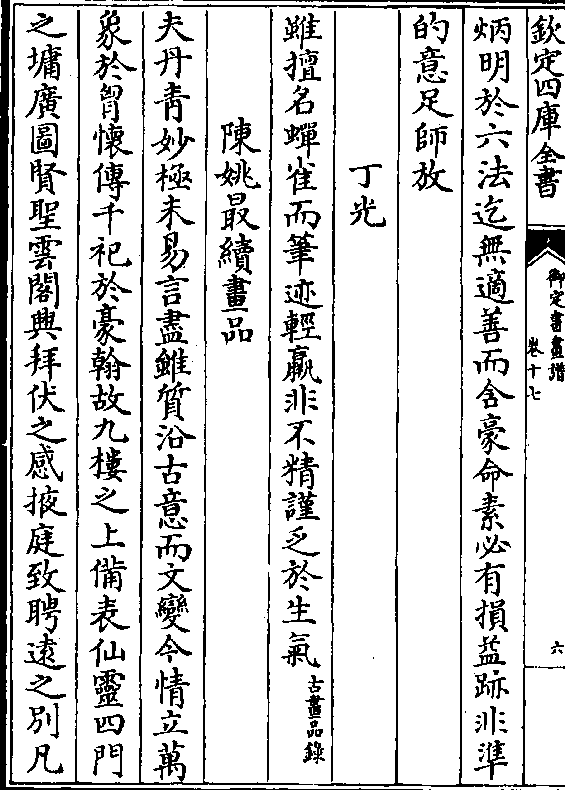 欽定四庫全書
御定書畫譜
卷十七
六
炳明於六法迄無適善而含豪命素必有損益跡非準
的意足師放
丁光
雖擅名蟬雀而筆迹輕羸非不精謹乏於生氣古畫品錄
陳姚最續畫品
夫丹青妙極未易言盡雖質沿古意而文變今情立萬
象於胷懷傳千祀於豪翰故九樓之上備表仙靈四門
之墉廣圖賢聖雲閣興拜伏之感掖庭致聘遠之別凡